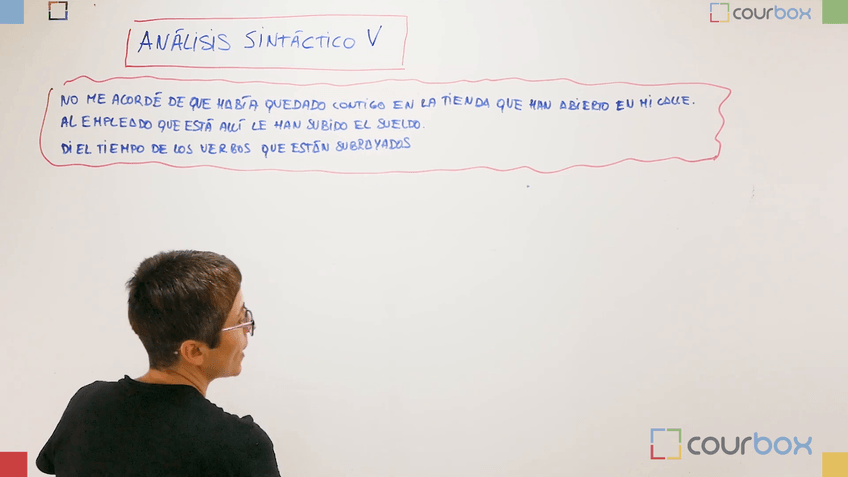 courbox
ANÁLISIS SINTÁCTICO V
NO ME ACORDÉ DE QUE HABÍA QUEDADO CONTIGO EN LA TIENDA QUE HAN ABIERTO EN MI CALLE.
AL EMPLEADO QUE ESTÁ ALLÍ LE HAN SUBIDO EL SUELDO.
DI EL TIEMPO DE LOS VERBOS QUE ESTÁN SUBRAYADOS
courbox